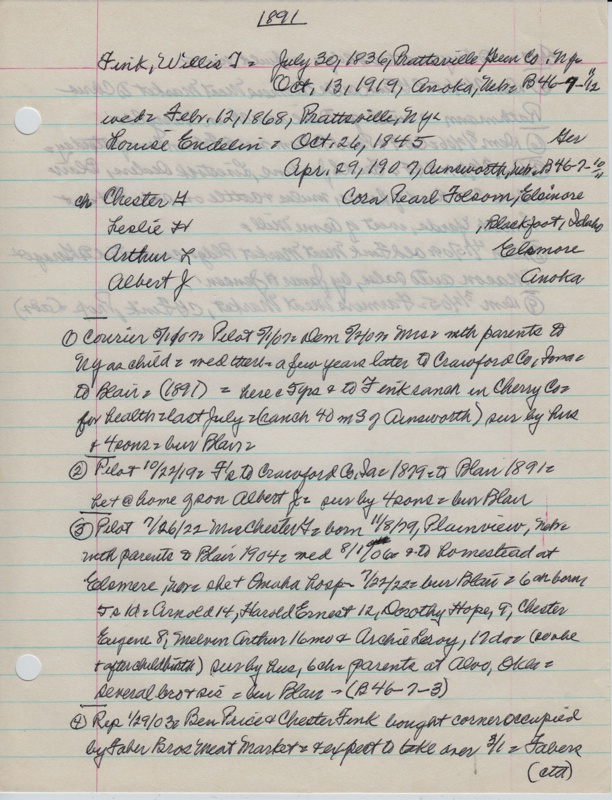 1891
Fink, Willis T = July 30, 1836, Prattsville, Co, Ny=
Oct. 13, 1919, Anoka, Neb = B46-7-9/12
wed = Febr. 12, 1868, Prattsville, Ny=
Louise Endelin = Oct. 26, 1845 Ger
Apr. 29, 1907, Ainsworth, Neb = B46-7-10/11
ch Chester F Cora Pearl Folsom, Elsinore
Leslie W Blackfoot, Idaho
Arthur L Elsmore
Albert J. Anoka
① Courier 5/1/07= Pilot 5/1/07= Dem 5/2/07= Mrs = with parents to
Ny as child = wed there = a few years later to Crawford Co, Iowa =
to Blair = (1891) = here c 5 yrs & to Fink ranch in Cherry Co =
for health = last July = (ranch 40 m S of Ainsworth) sur by hus
& 4 sons = bur Blair =
② Pilot 10/22/19 = F's to Crawford Co, Ia = 1879 = to Blair 1891 =
he + @ home of son Albert J = sur by 4 sons = bur Blair
③ Pilot 7/26/22 Mrs Chester F = born 11/8/79, Plainview, Neb =
with parents to Blair 1904 = wed 8/1/06 = & to homestead at
Elsmere, Neb = she + Omaha hosp - 7/22/22 = bur Blair = 6 ch born
5 s 1 d = Arnold 14, Harold Ernest 12, Dorothy Hope, 9, Chester
Eugene 8, Melvin Arthur 16 mo & Archie Leroy, 17 da =
+ after childbirth) sur by hus, 6 ch = parents at Alvo, Okla =
several bro & sis = bur Blair - (B46-7-3)
④ Rep 1/29/03 = Ben Price & Chester Fink bought corner occupied
by Faber Bros Meat Market = & expect to take over 3/1 = Fabers